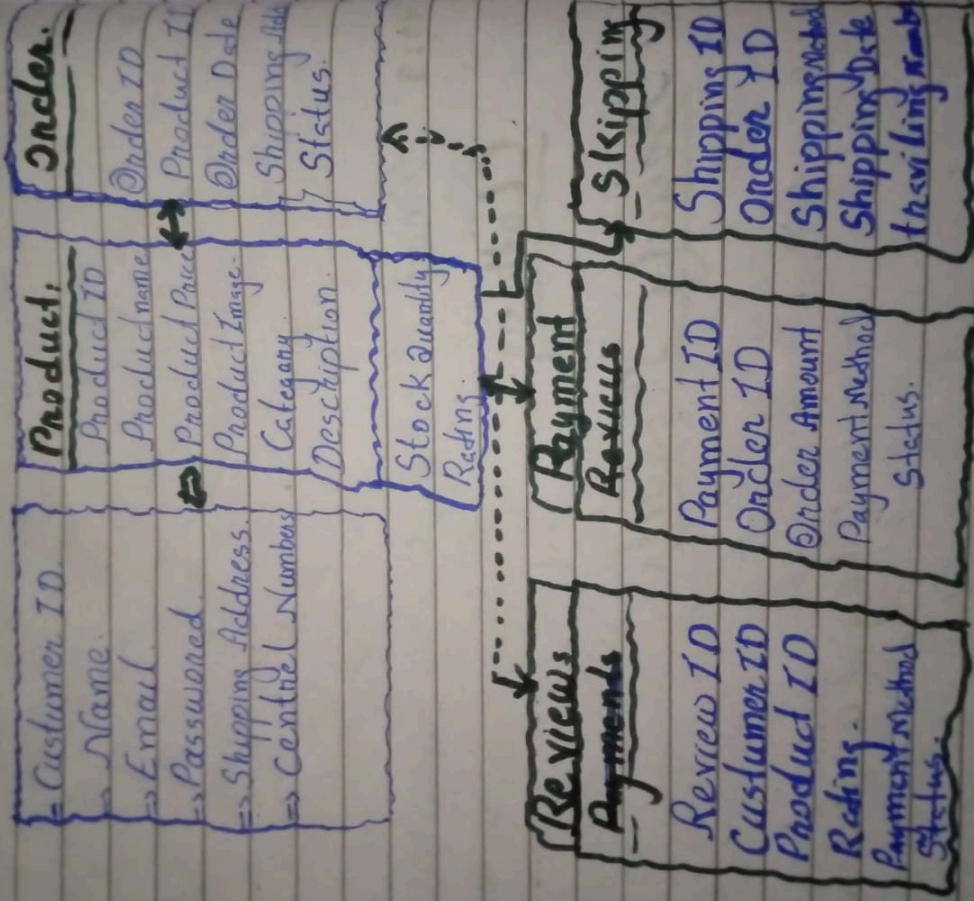 = Custumer ID.
⇒ Name.
⇒ Email.
⇒ Passwored.
⇒ Shipping Address.
⇒ Centnel Numbers
Product.
Product ID
Product name
Product Price
Product Image.
Categany
Description
Stock Quantity
Rating.
Order.
Order ID
Product ID
Order Date
Shipping Add
Status.
Reviews
Payments
Review ID
Custumer ID
Product ID
Rating.
Payment Method
Status.
Payment
Revius
Payment ID
Order ID
Order Amount
Payment Method
Status.
Skipping
Shipping ID
Order ID
Shipping Method
Shipping Date